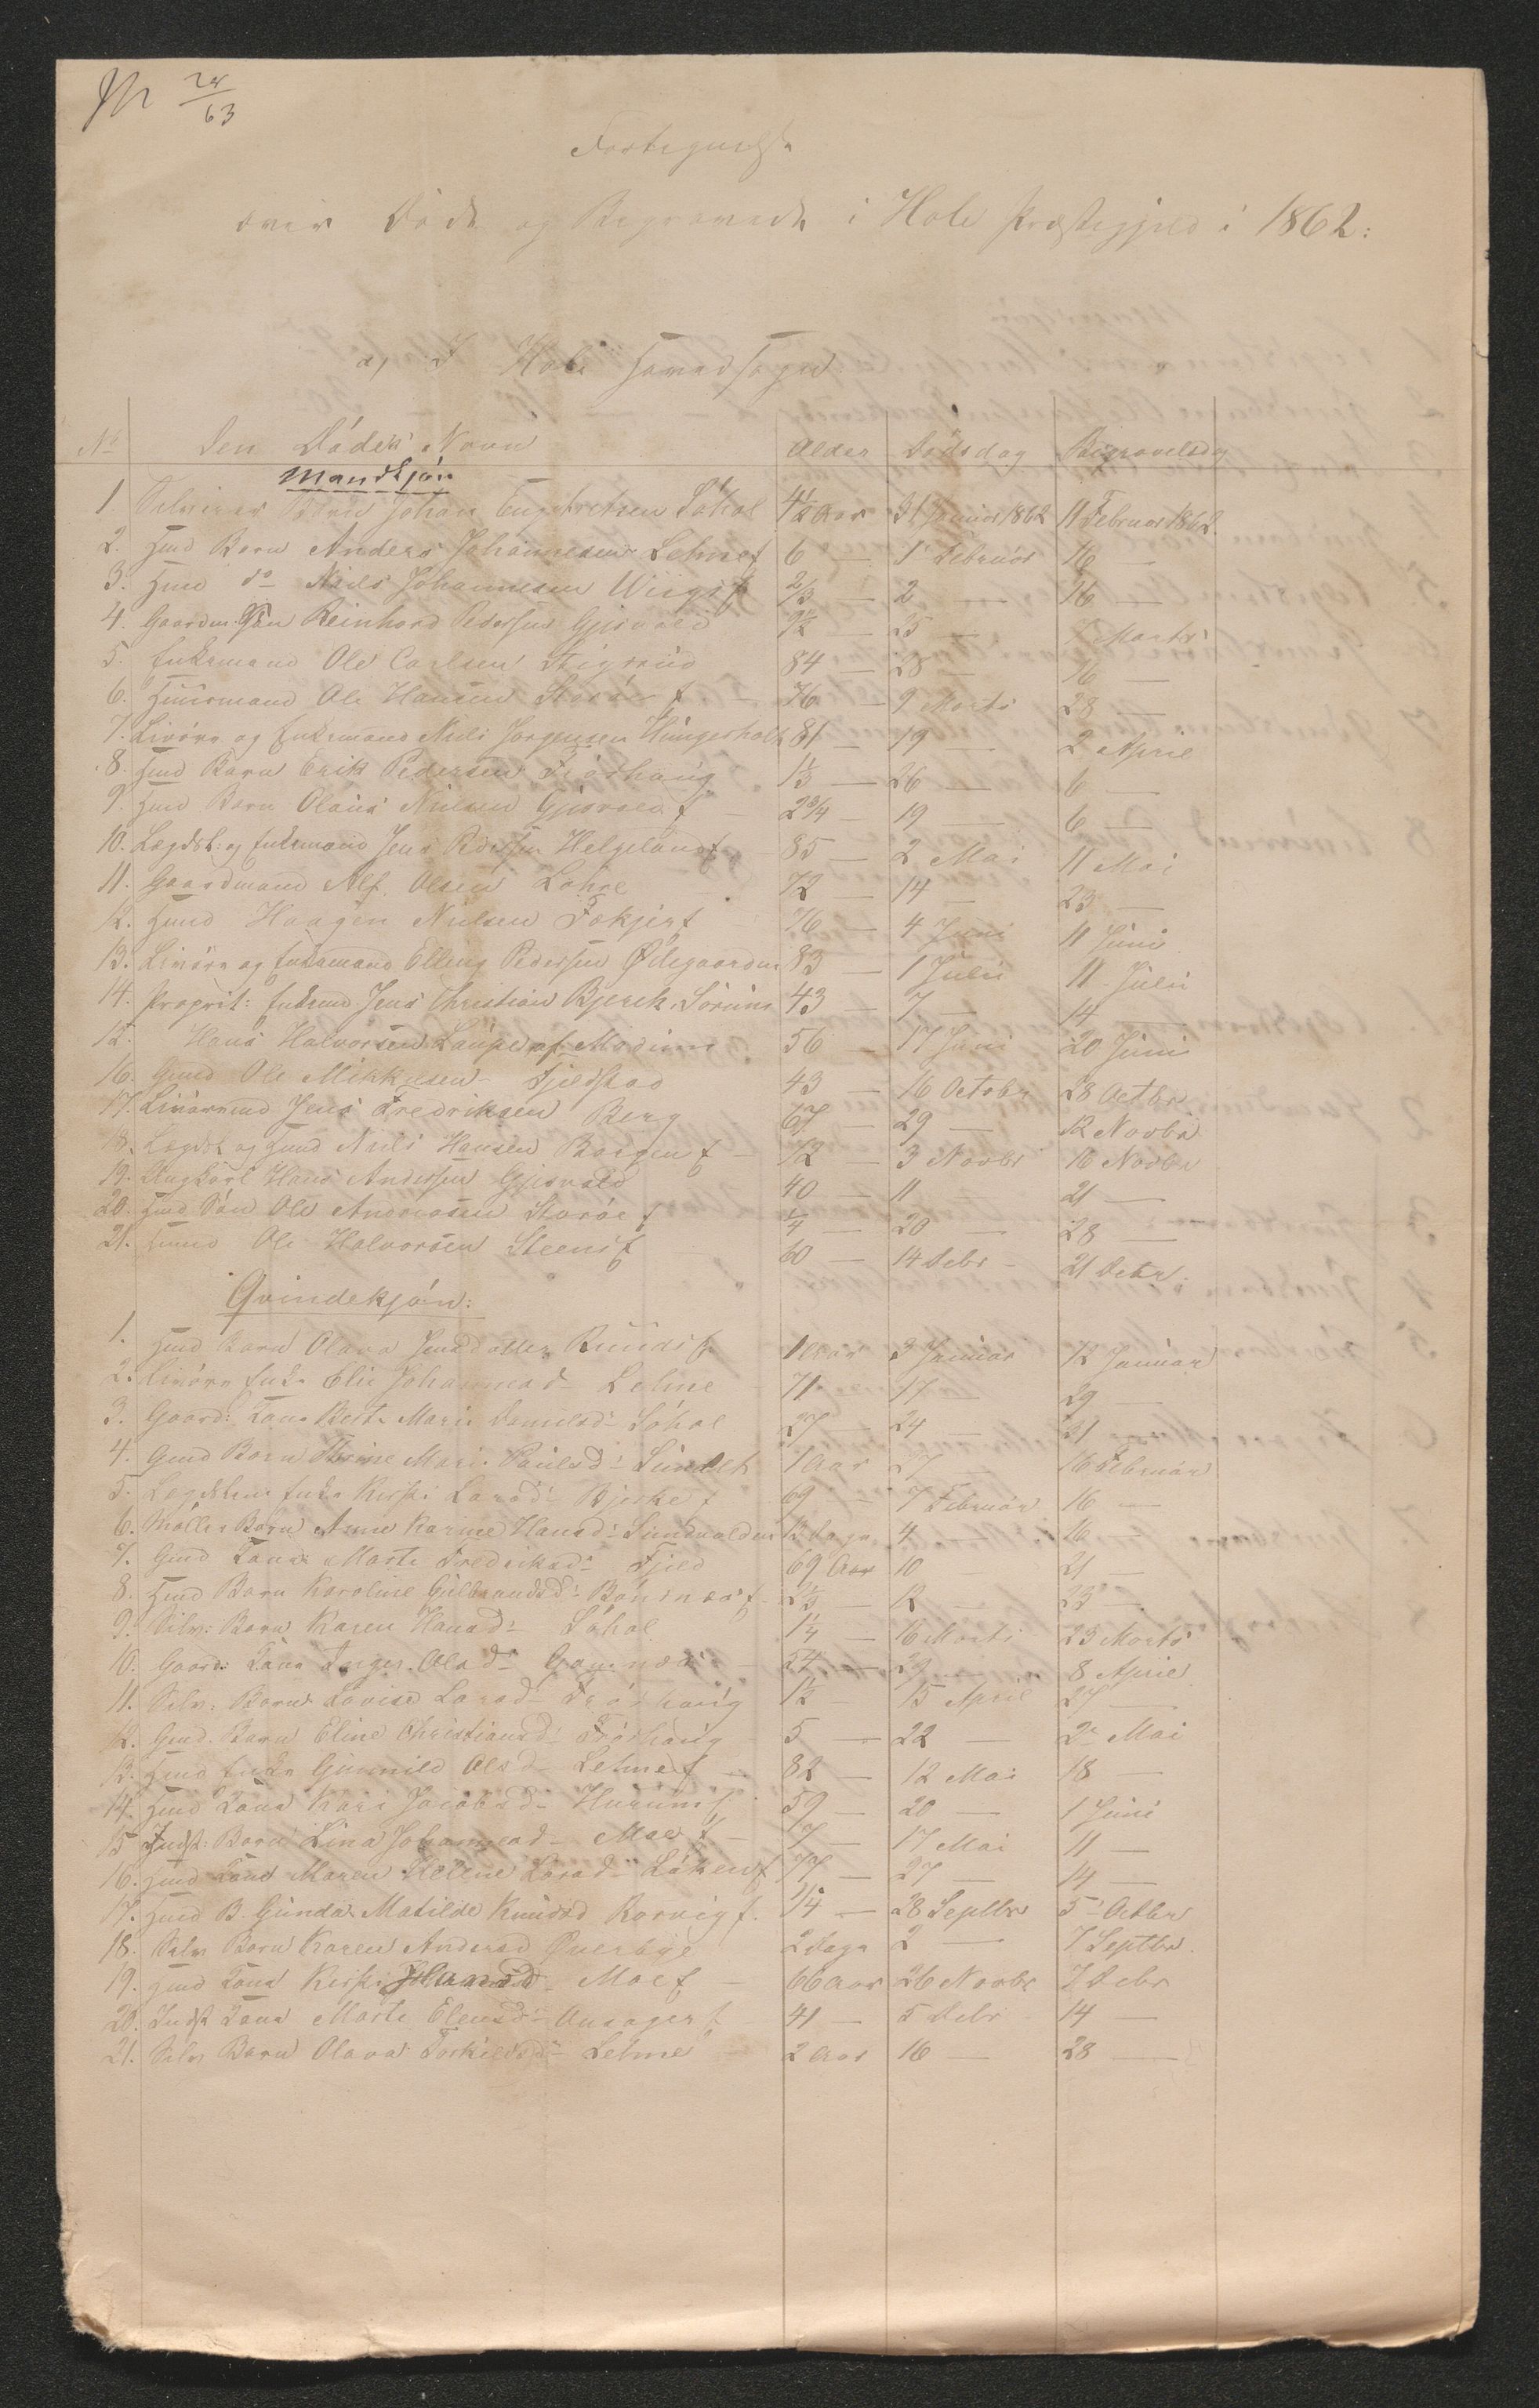 24
63
Fortegnelse
over Døde og Begravede i Hole Præstegjeld i 1862:
a, I Hole Hovedsogn
No Den Dødes Navn Alder Dødsdag Begravelsdg
Mandkjøn
1. Selveier Barn Johan Engebretsen Søhol 4½ Aar 31 Januar 1862 11 Februar 1862
2. Hmd Barn Anders Johannesen Lehne 6 — 1 Februar 16 —
3. Hmd do Niels Johannesen Wiig 2/3 — 2 — 16 —
4. Gaardm. Søn Reinhard Pedersen Gjesvold 9½ — 25 — Marts
5. Enkemand Ole Carlsen Stigsrud 84 — 28 — 16 —
6. Huusmand Ole Hansen Storøe 76 — 9 Marts 28 —
7. Livøre og Enkemand Niels Jørgensen Hungerholt 81 — 19 — 2 April
8. Hmd Barn Erik Pedersen Frøshaug 1⅓ — 26 — 6 —
9. Hmd Barn Olaus Nielsen Gjesvold 2¾ — 19 — 6 —
10. Lægdsl: og Enkemand Jens Pedersen Helgeland 85 — 2 Mai 11 Mai
11. Gaardmand Alf Olsen Lohre 72 — 14 — 23 —
12. Hmd Haagen Nielsen Fekjer 76 — 4 Juni 11 Juni
13. Livøre og Enkemand Elling Pedersen Ødegaarden 83 — 1 Juli 11 Juli
14. Proprit: Enkemd Jens Christian Bjerck, Sørum 43 — 7 — 14 —
15. Hans Halvorsen af Modum 56 — 17 Juni 20 Juni
16. Gmd Ole Mikkelsen Fjeldstad 43 — 16 Octobr 28 Octbr
17. Livøremd Jens Fredriksen Berg 67 — 29 — 12 Novbr
18. Lægdsl og Hmd Niels Hansen Borgen 72 — 3 Novbr 16 Novbr
19. Ungkarl Hans Andersen Gjesvold 40 — 11 — 21 —
20. Hmd Søn Ole Andreasen Storøe ¼ — 20 — 28 —
21. Hmd Ole Halvorsen Steens 60 — 14 Debr 21 Debr.
Qvindekjøn:
1. Hmd Barn Olava Jensdatter 1 Aar 3 Januar 12 Januar
2. Livøre Enke Elie Johannesd- Lehne 71 — 17 — 29 —
3. Gaard: Kone Berte Marie Danielsd- Søhol 27 — 24 — 31 —
4. Gmd Barn Thrine Marie Paulsd- Sundet 1 Aar 27 16 Februar
5. Lægdslem Enke Kirsti Larsd- Bjerke 69 — 7 Februar 16 —
6. Møller Barn Anne Karine Hansd- Sundvolden 12 Dage 4 16 —
7. Gmd Kone Marte Fredriksd- Fjeld 69 Aar 10 21 —
8. Hmd Barn Karoline Gulbrandsd- Bønsnæs 2⅓ — 12 — 23 —
9. Selv: Barn Karen Hansd- Søhol 1¼ — 16 Marts 23 Marts
10. Gaard: Kone Inger Olsd- 54 — 29 — 8 April
11. Selv: Barn Lovise Larsd- Frøshaug 1½ — 15 April 27 —
12. Gmd Barn Eline Christiansd- Frøshaug 5 — 22 — 2 Mai
13. Hmd Enke Gunnild Olsd- Lehne 82 — 12 Mai 18 —
14. Hmd Kone Kari Jacobsd- Hurum 59 — 20 — 1 Juni
15 Indst: Barn Lina Johannesd- Moe 7 — 17 Mai 11 —
16. Hmd Kone Maren Helene Larsd- Løken 77 — 27 — 14 —
17. Hmd B. Gunda Matilde Knudsd Rørvig ¼ — 28 Septbr 5 Octbr
18. Selv Barn Karen Andersd Øverbye 2 Dage 2 — 7 Septbr.
19. Hmd Kone Kirsti Moe 66 Aar 26 Novbr 7 Debr
20. Indst Kone Marte Elensd- Onsager 41 — 5 Debr 14 —
21. Selv Barn Olava Torkildsd- Lehne 2 Aar 16 — 28 —